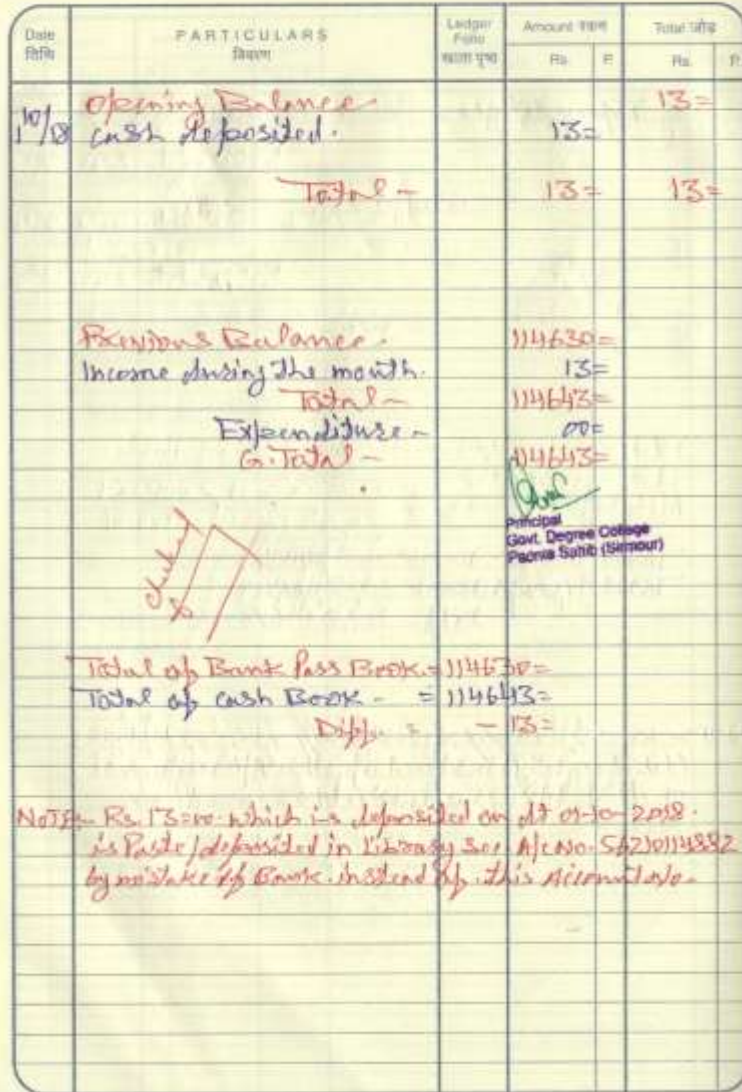 Date PARTICULARS Ledger Folio Amount रकम Total जोड़
तिथि विवरण खाता पृष्ठ Rs. P. Rs. P.
Opening Balance 13=
1/10/18 cash deposited. 13=
Total - 13= 13=
Previous Balance. 114630=
Income during the month. 13=
Total - 114643=
Expenditure - 00=
G. Total - 114643=
Principal
Govt. Degree College
Paonta Sahib (Sirmour)
Checked
Total of Bank Pass Book = 114630=
Total of cash Book - = 114643=
Diff. = - 13=
NOTE:- Rs. 13=00 which is deposited on dt 01-10-2018.
is Paste/deposited in Library Sec. A/c No. 56210114882
by mistake of Bank. instead of this Account No.